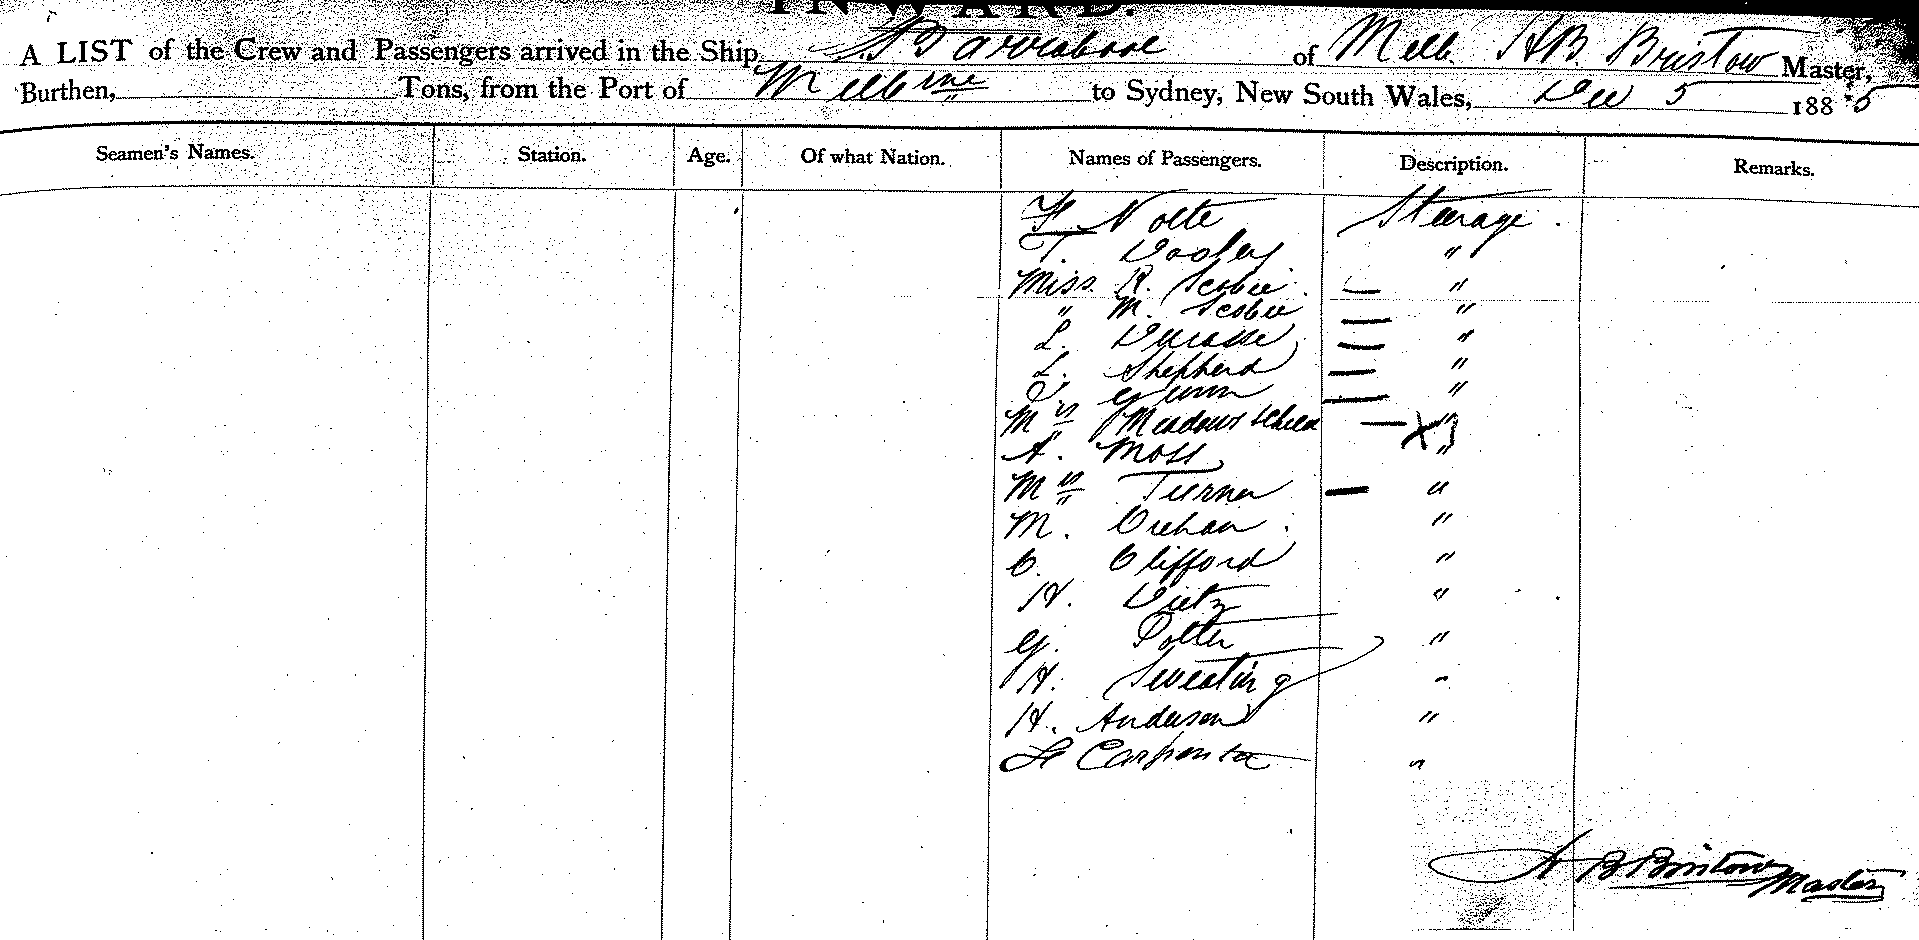 INWARD.
A LIST of the Crew and Passengers arrived in the Ship Barrabool of Melb. H B. Bristow Master,
Burthen, Tons, from the Port of Melbrne to Sydney, New South Wales, Dec 5 1885
Seamen's Names. Station. Age. Of what Nation. Names of Passengers. Description. Remarks.
F. Nolte Steerage.
T. Dooley "
Miss R. Scobie "
" M. Scobie "
L. "
L. Shepherd "
Gunn "
Mrs Meadows & Child "
A. Moss "
Mrs Turner "
M. Crehan "
C. Clifford "
H. Dietz "
G. Potter "
H. Sweating "
H. Anderson "
Carpenter "
H B Bristow Master